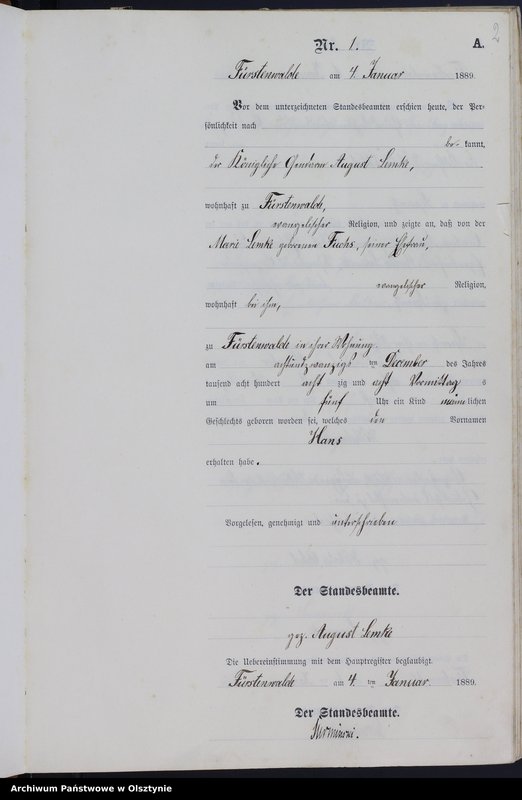 2
Nr. 1. A.
Fürstenwalde am 4. Januar 1889.
Vor dem unterzeichneten Standesbeamten erschien heute, der Per-
sönlichkeit nach
be- kannt,
der Königliche Gendarm August Lemke,
wohnhaft zu Fürstenwalde,
evangelischer Religion, und zeigte an, daß von der
Marie Lemke geborenen Fuchs, seiner Ehefrau,
evangelischer Religion,
wohnhaft bei ihm,
zu Fürstenwalde in ihrer Wohnung
am achtundzwanzigsten December des Jahres
tausend acht hundert acht zig und acht Vormittag s
um fünf Uhr ein Kind männlichen
Geschlechts geboren worden sei, welches den Vornamen
Hans
erhalten habe.
Vorgelesen, genehmigt und unterschrieben
Der Standesbeamte.
gez. August Lemke
Die Uebereinstimmung mit dem Hauptregister beglaubigt.
Fürstenwalde am 4. ten Januar. 1889.
Der Standesbeamte.
Archiwum Państwowe w Olsztynie